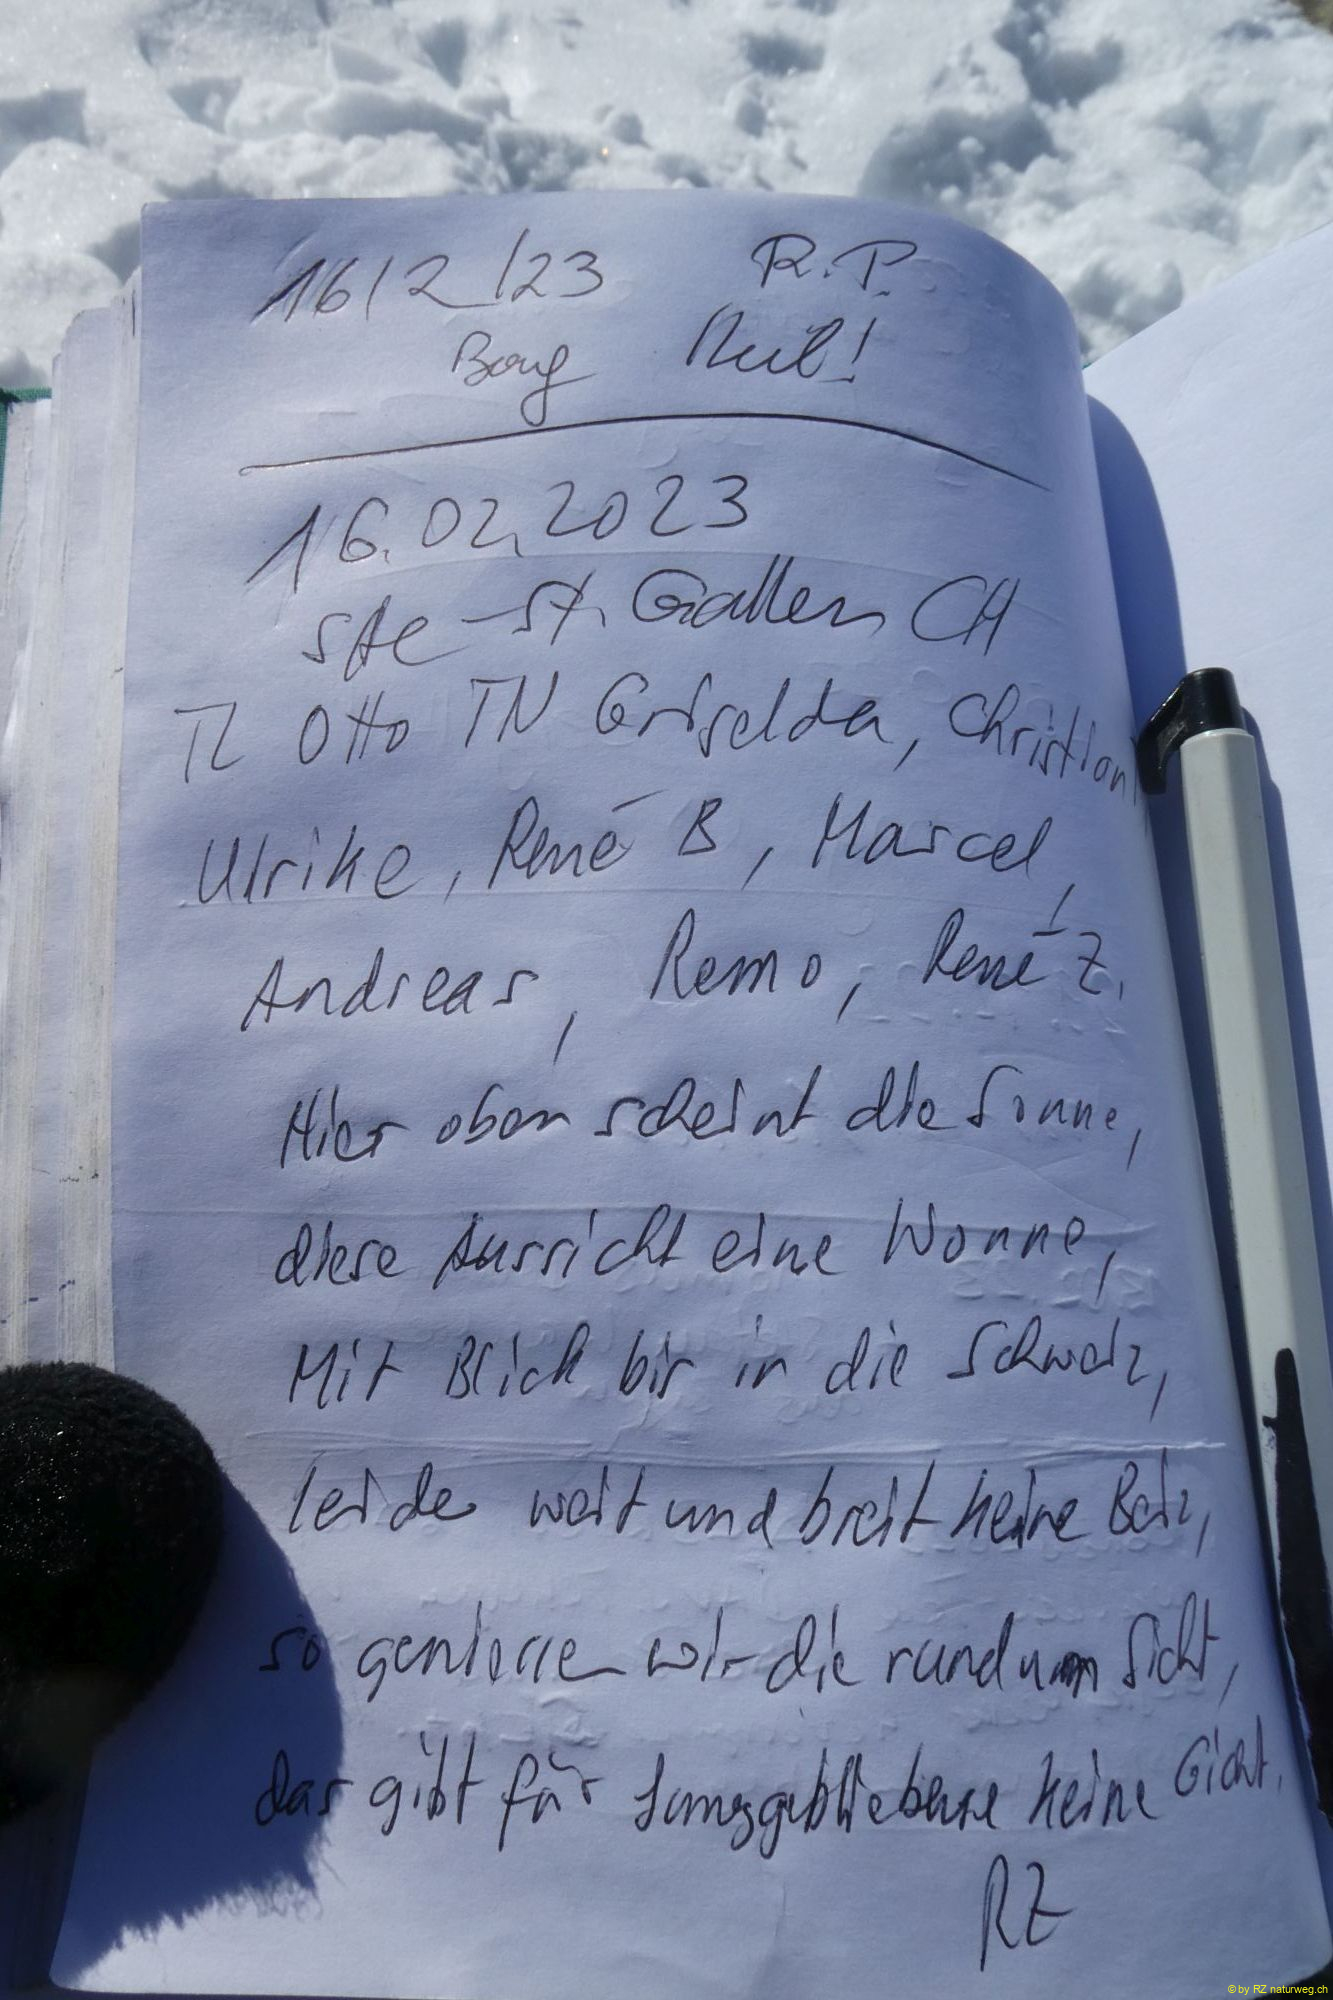 16/2/23 R.P.
Berg Heil!
16.02.2023
SAC St. Gallen CH
TL Otto TN Griselda, Christian
Ulrike, René B, Marcel,
Andreas, Remo, René Z.
Hier oben scheint die Sonne,
diese Aussicht eine Wonne,
Mit Blick bis in die Schweiz,
leider weit und breit keine Beiz,
so geniessen wir die rundum Sicht,
das gibt für Junggebliebene keine Gicht.
RZ
© by RZ naturweg.ch